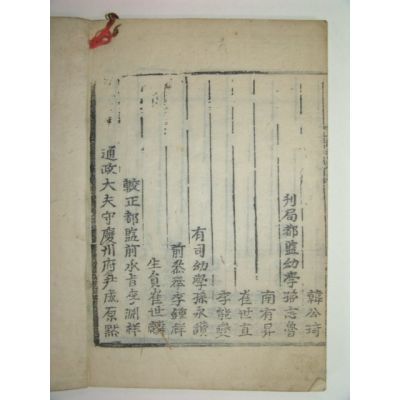 韓公琦
刊局都監幼學孫志魯
南有昇
崔世直
李能燮
有司幼學孫永
前叅奉李鍾祥
生員崔世麟
較正都監前承旨李淵祥
通政大夫守慶州府尹成原黙